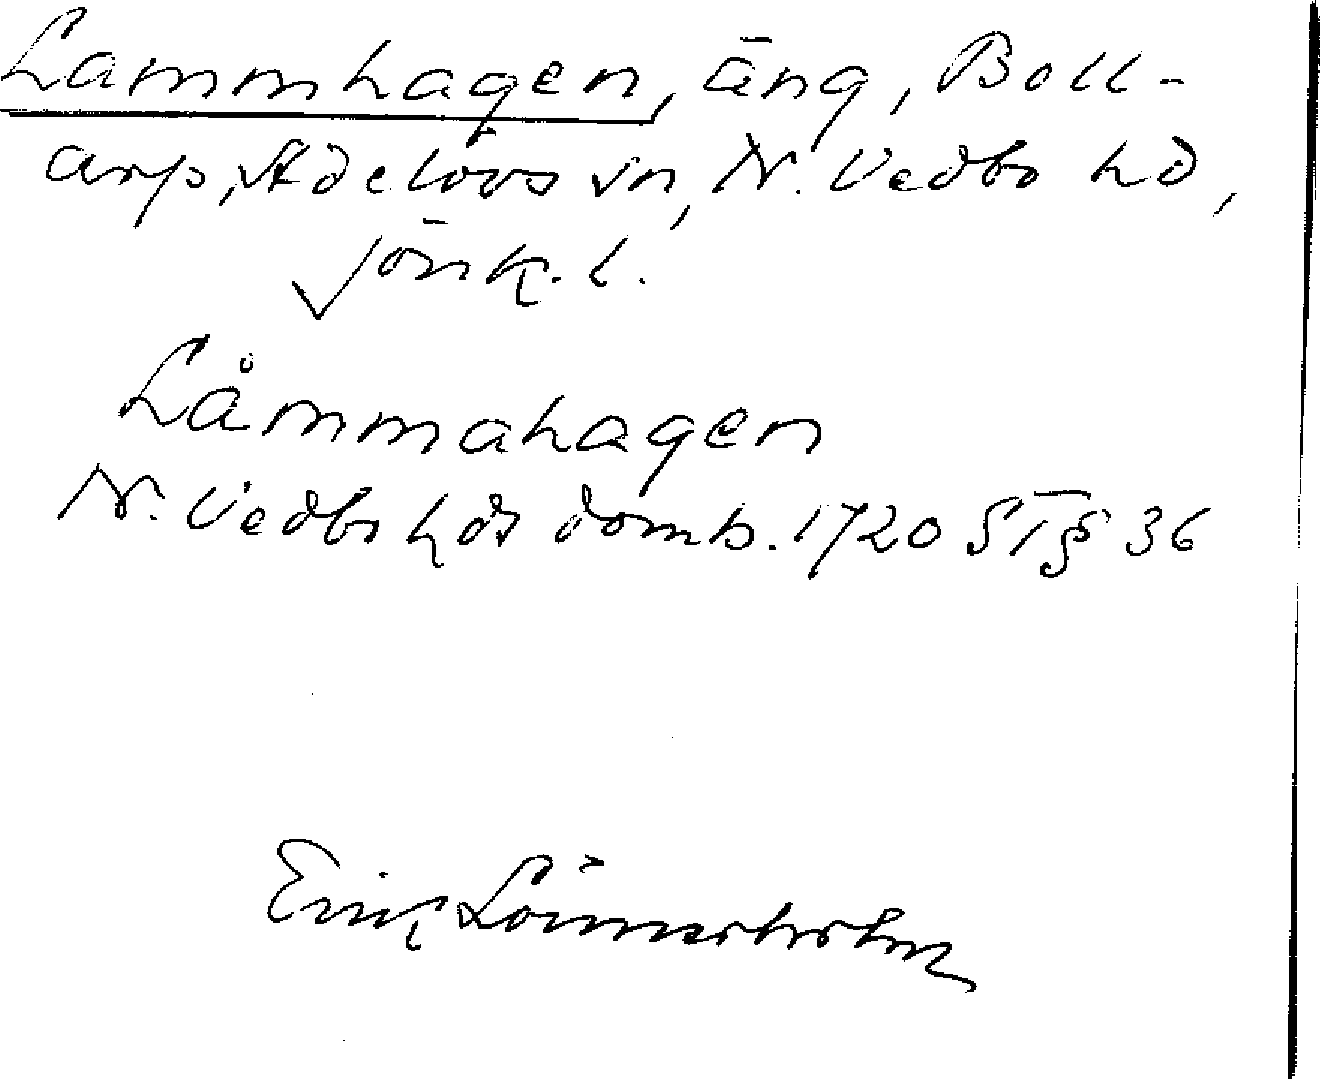 Lammhagen, äng, Boll-
arp, Adelövs sn, N. Vedbo hd,
Jönk. l.
Låmmahagen
N. Vedbo hds domb. 1720 ST § 36
Erik Lönnerholm